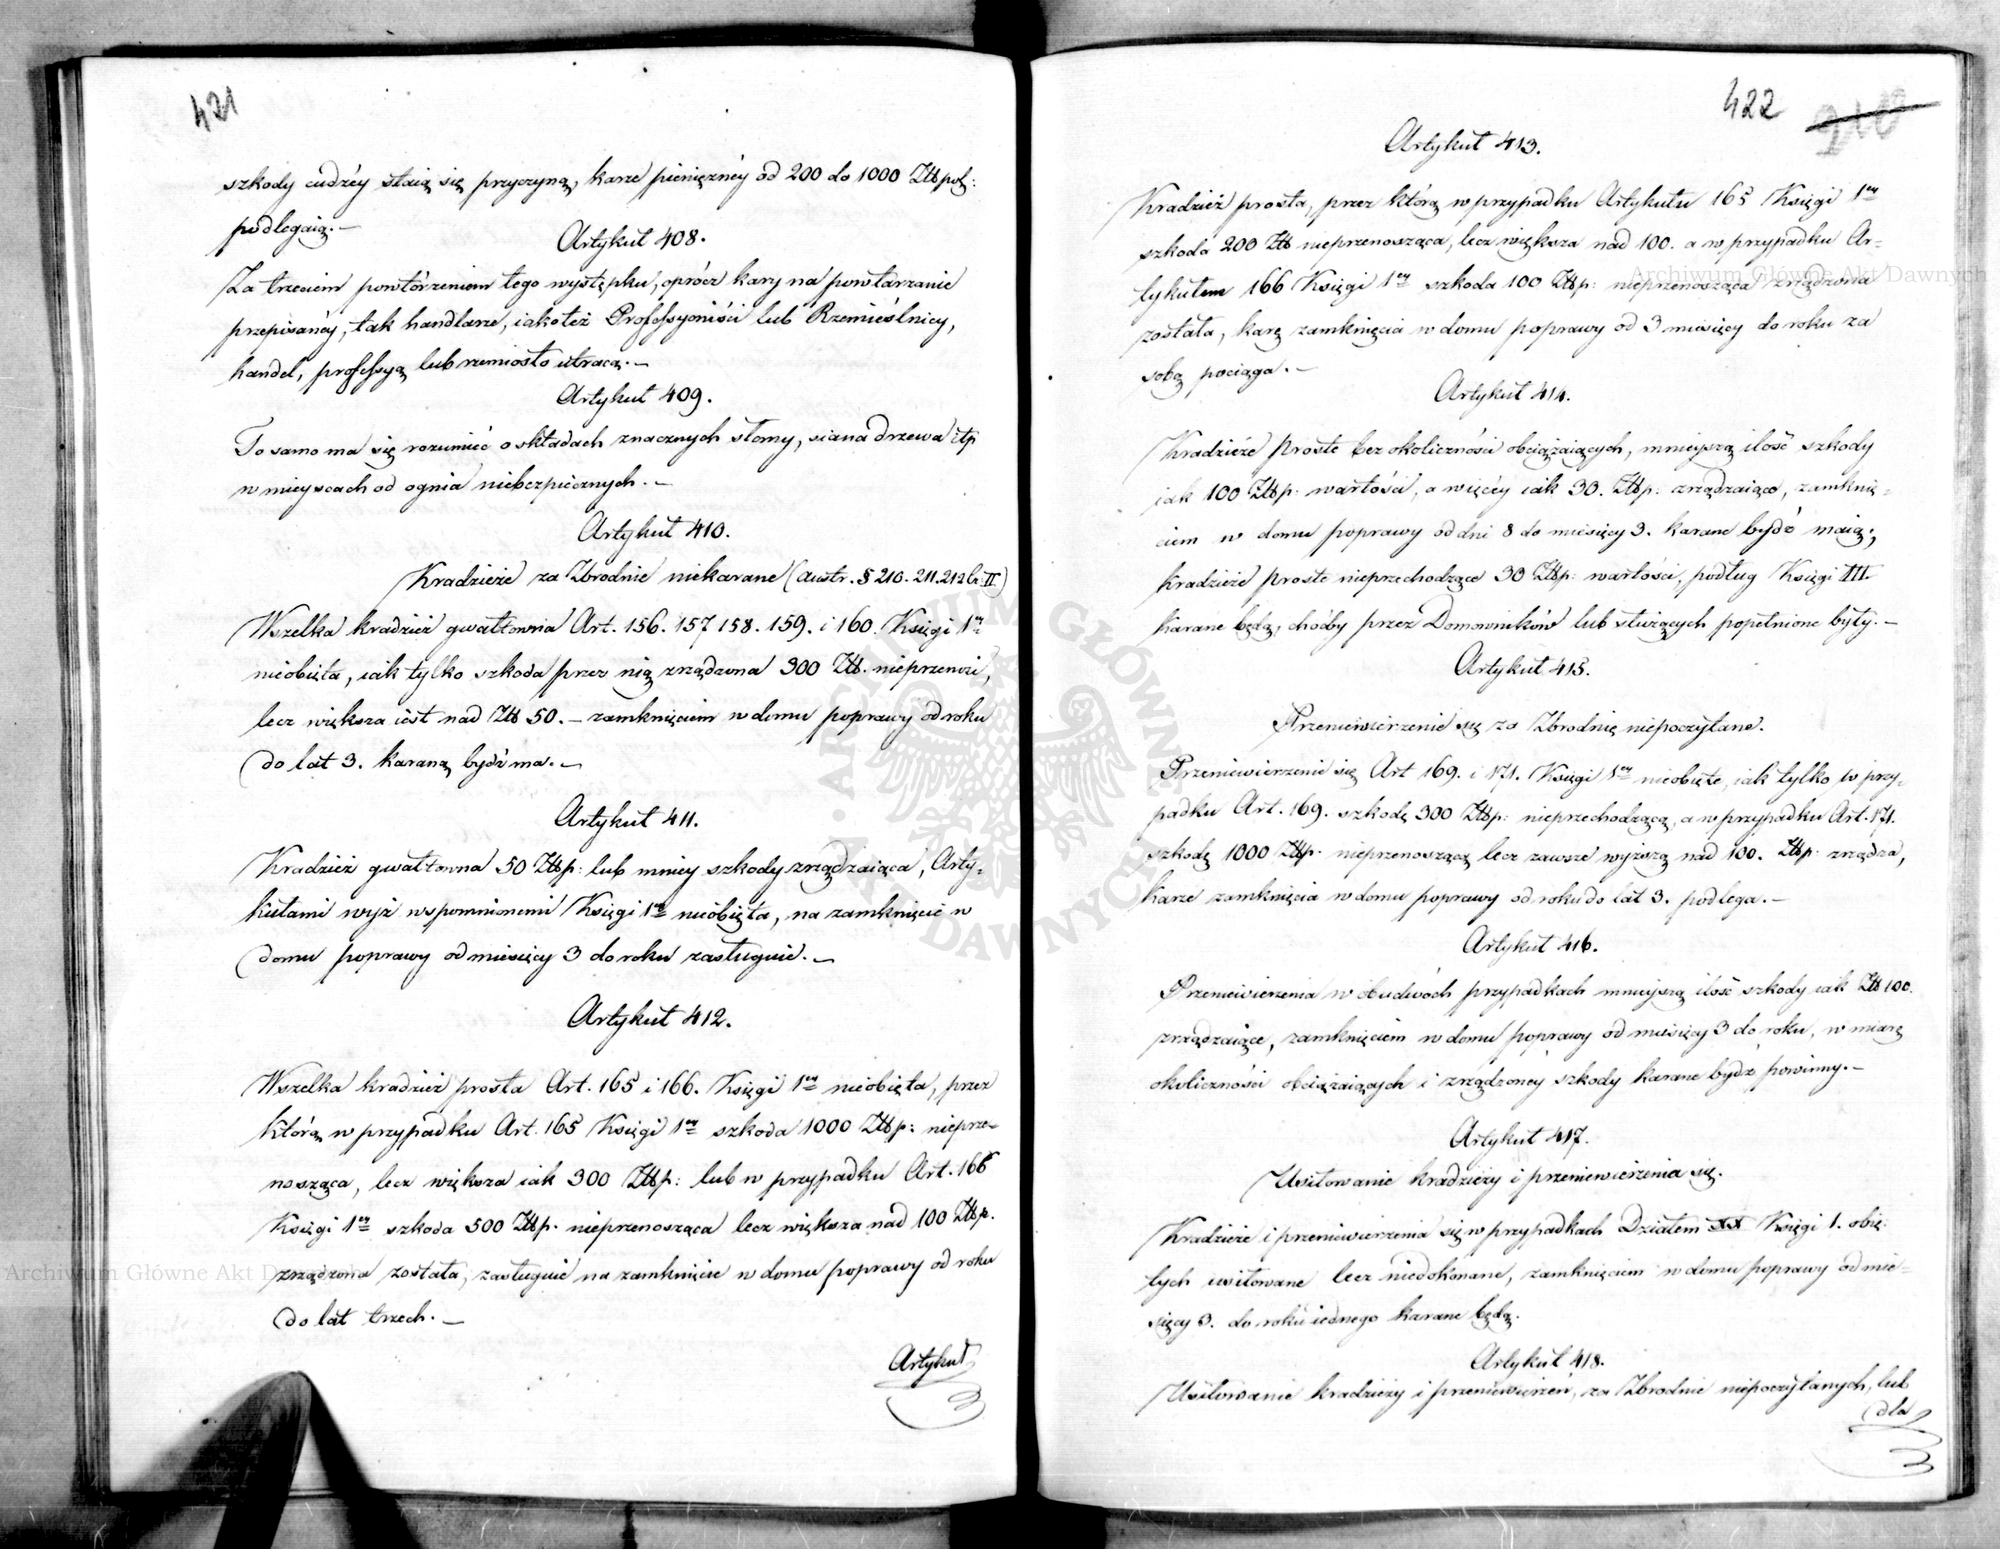 421
szkody cudzéy staią się przyczyną, karze pieniężnéy od 200 do 1000 Złłpol:
podlegaią.—
Artykuł 408.
Za trzeciem powtórzeniem tego występku, oprócz kary na powtarzanie
przepisanéy, tak handlarze, iakoteż Professyoniści lub Rzemieślnicy,
handel, professyą lub rzemiosło utracą.—
Artykuł 409.
To samo ma się rozumieć o składach znacznych słomy, siana drzewa itp
w mieyscach od ognia niebezpiecznych.—
Artykuł 410.
Kradzieże za Zbrodnie niekarane (austr. § 210. 211. 212 Cz: II)
Wszelka kradzież gwałtowna Art. 156. 157 158. 159. i 160. Księgi 1ey
nieobięta, iak tylko szkoda przez nią zrządzona 300 Złł. nieprzenosi,
lecz większa iest nad Złł 50.— zamknięciem w domu poprawy od roku
do lat 3. karaną bydź ma.—
Artykuł 411.
Kradzież gwałtowna 50 Złłp: lub mniey szkody zrządzaiąca, Arty-
kułami wyż wspomnionemi Księgi 1ey nieobięta, na zamknięcie w
domu poprawy od miesięcy 3 do roku zasługuie.—
Artykuł 412.
Wszelka kradzież prosta Art. 165 i 166. Księgi 1ey nieobięta, przez
którą w przypadku Art. 165 Księgi 1ey szkoda 1000 Złłp: nieprze-
nosząca, lecz większa iak 300 Złłp: lub w przypadku Art. 166
Księgi 1ey szkoda 500 Złłp. nieprzenosząca lecz większa nad 100 Złłp.
zrządzona została, zasługuie na zamknięcie w domu poprawy od roku
do lat trzech.—
Artykuł
422
Artykuł 413.
Kradzież prosta, przez którą w przypadku Artykułu 165 Księgi 1ey
szkoda 200 Złł nieprzenosząca, lecz większa nad 100. a w przypadku Ar-
tykułem 166 Księgi 1ey szkoda 100 Złłp: nieprzenosząca zrządzona
została, karę zamknięcia w domu poprawy od 3 miesięcy do roku za
sobą pociąga.—
Artykuł 414.
Kradzieże proste bez okoliczności obciążaiących, mnieyszą ilość szkody
iak 100 Złłp: wartości, a więcéy iak 30. Złłp: zrządzaiące, zamknię-
ciem w domu poprawy od dni 8 do miesięcy 3. karane bydź maią;
kradzieże proste nieprzechodzące 30 Złłp: wartości, podług Księgi III.
karane będą, choćby przez Domowników lub służących popełnione były.—
Artykuł 415.
Przeniewierzenie się za Zbrodnię niepoczytane.
Przeniewierzenie się Art 169. i 171. Księgi 1ey nieobięte, iak tylko w przy-
padku Art. 169. szkodę 300 Złłp: nieprzechodzącą, a w przypadku Art. 171.
szkodę 1000 Złłp. nieprzenoszącą lecz zawsze wyższą nad 100. Złłp: zrządza,
karze zamknięcia w domu poprawy od roku do lat 3. podlega.—
Artykuł 416.
Przeniewierzenia w obudwóch przypadkach mnieyszą ilość szkody iak Złł 100.
zrządzaiące, zamknięciem w domu poprawy od miesięcy 3 do roku, w miarę
okoliczności obciążaiących i zrządzoney szkody karane bydź powinny.—
Artykuł 417.
Usiłowanie kradzieży i przeniewierzenia się.
Kradzieże i przeniewierzenia się w przypadkach Działem XX Księgi 1. obię-
tych usiłowane lecz niedokonane, zamknięciem w domu poprawy od mie-
sięcy 3. do roku iednego karane będą.
Artykuł 418.
Usiłowanie kradzieży i przeniewierzeń, za Zbrodnie niepoczytanych, lub
dla
Archiwum Główne Akt Dawnych
Archiwum Główne Akt Dawnych
ARCHIWUM GŁÓWNE AKT DAWNYCH